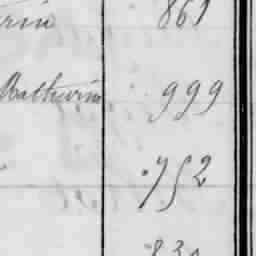 rin 861
Mathurin 999
752